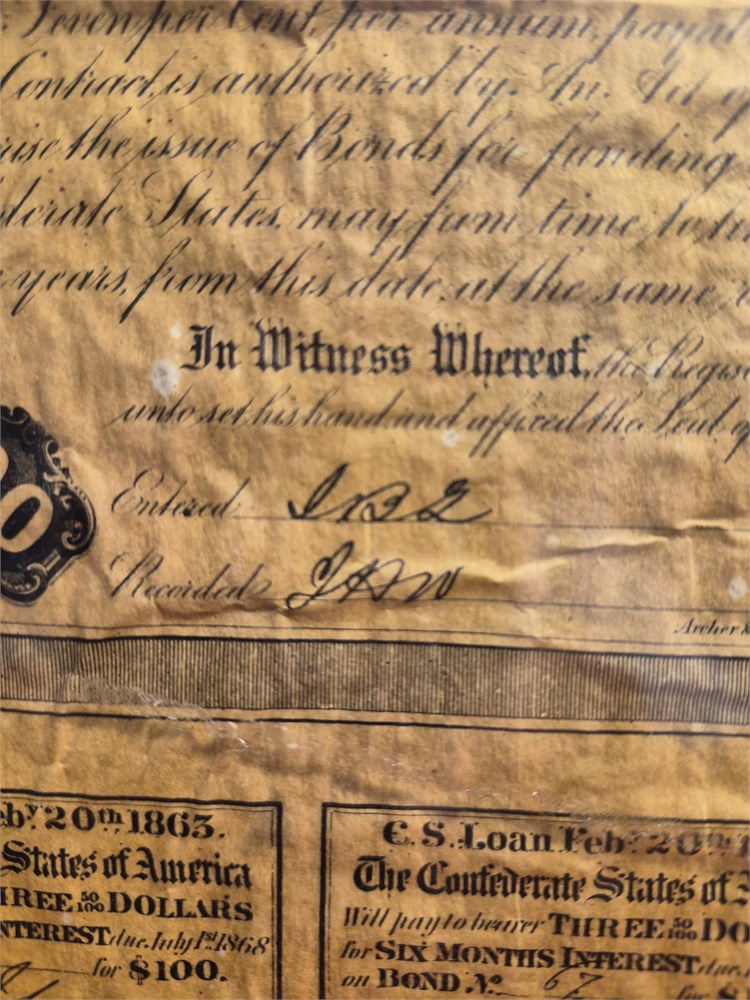 Seven per Cent, per annum, payal
Contract, is authorized by. An. Act of
rise the issue of Bonds for funding
derate States, may from time to ti
years, from this date, at the same
In Witness Whereof, the Regis
unto set his hand and affixed the Seal of
0
Entered
Recorded
Archer &
eby 20th 1863.
States of America
HREE 50/100 DOLLARS
NTEREST due July 1st 1868
for $100.
C. S. Loan Feby 20th 1
The Confederate States of A
Will pay to bearer THREE 50/100 DO
for SIX MONTHS INTEREST due
on BOND No 67